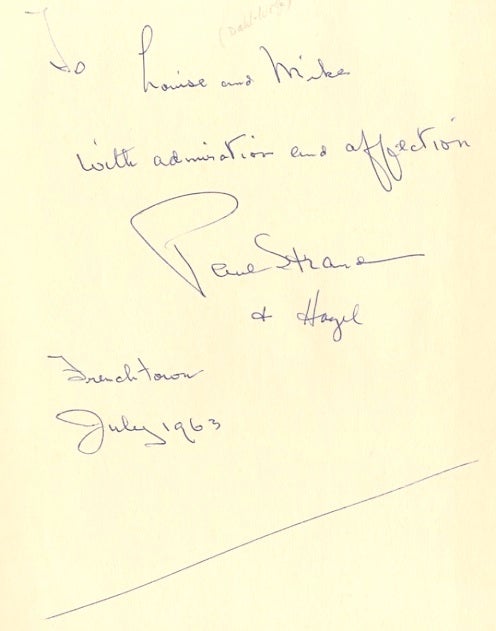 (Dahl-Wolfe)
To Louise and Mike
with admiration and affection
Paul Strand
+ Hazel
Frenchtown
July 1963